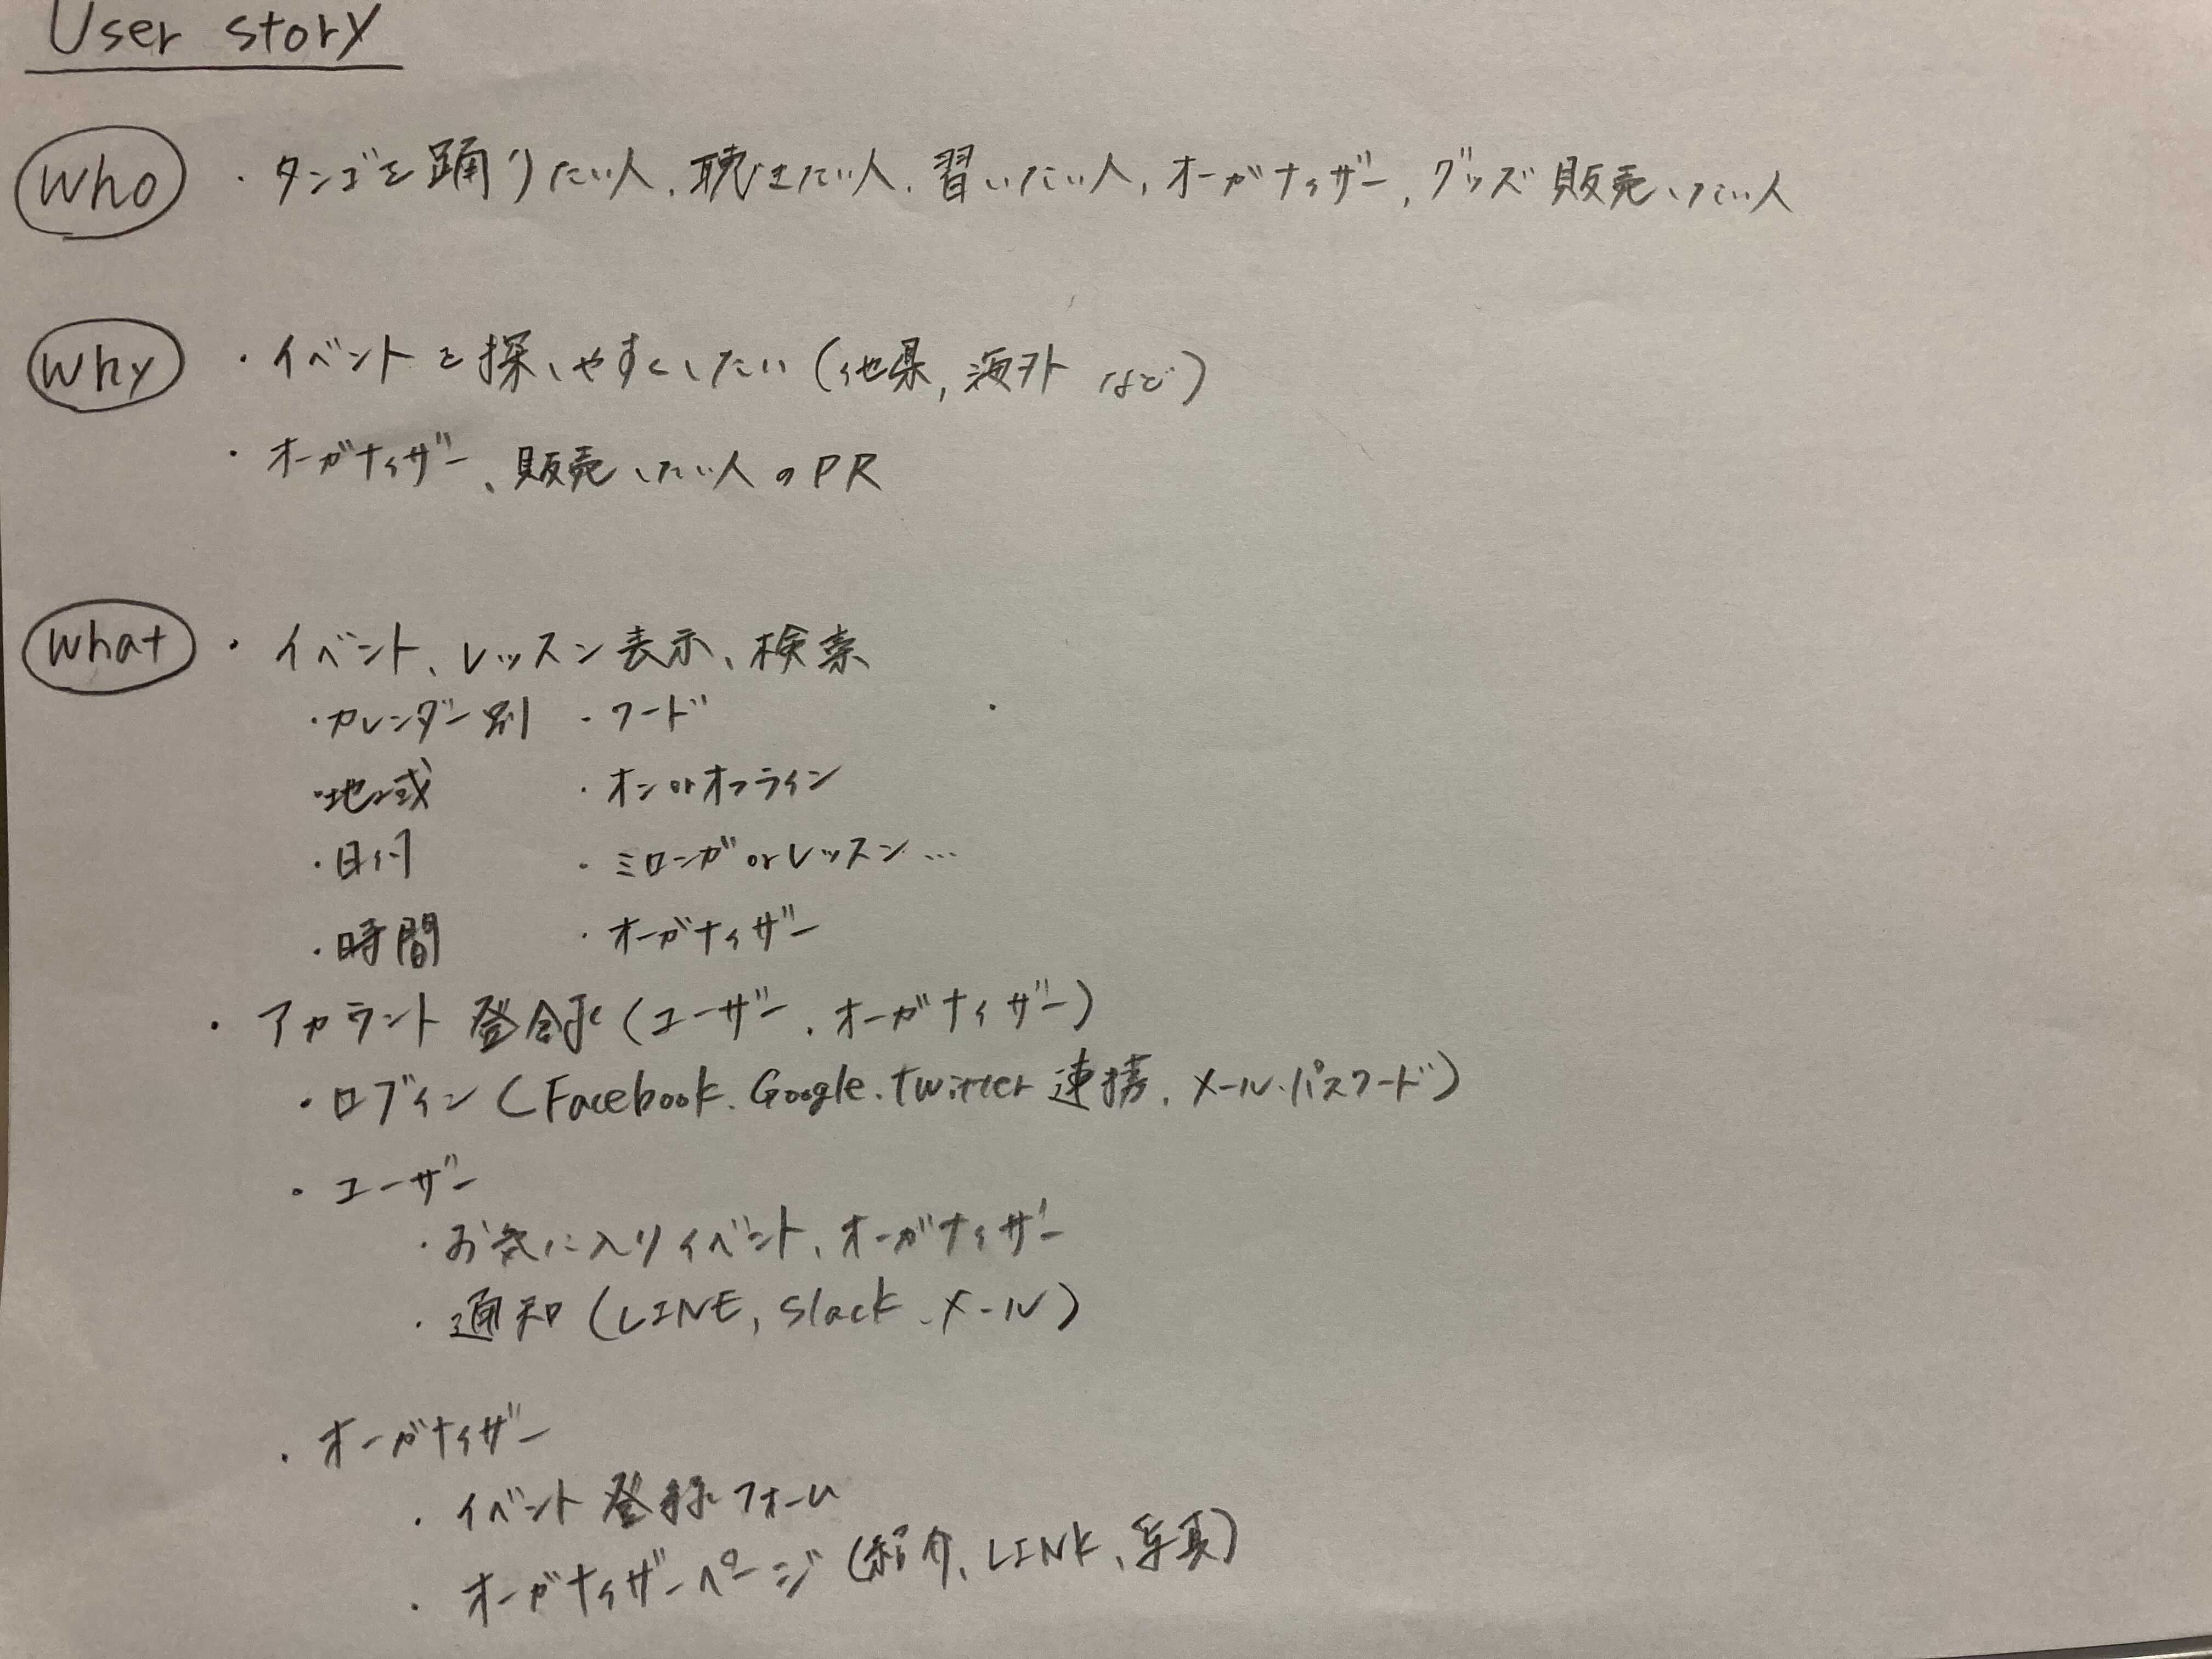 User story
Who ・タンゴを踊りたい人、聴きたい人、習いたい人、オーガナイザー、グッズ販売したい人
Why ・イベントを探しやすくしたい(他県、海外 など)
・オーガナイザー、販売したい人のPR
What ・イベント、レッスン表示、検索
・カレンダー別 ・ワード
・地域 ・オンorオフライン
・日付 ・ミロンガorレッスン…
・時間 ・オーガナイザー
・アカウント登録(ユーザー、オーガナイザー)
・ログイン(Facebook、Google、twitter連携、メール・パスワード)
・ユーザー
・お気に入りイベント、オーガナイザー
・通知(LINE, slack、メール)
・オーガナイザー
・イベント登録フォーム
・オーガナイザーページ(紹介、LINK、写真)